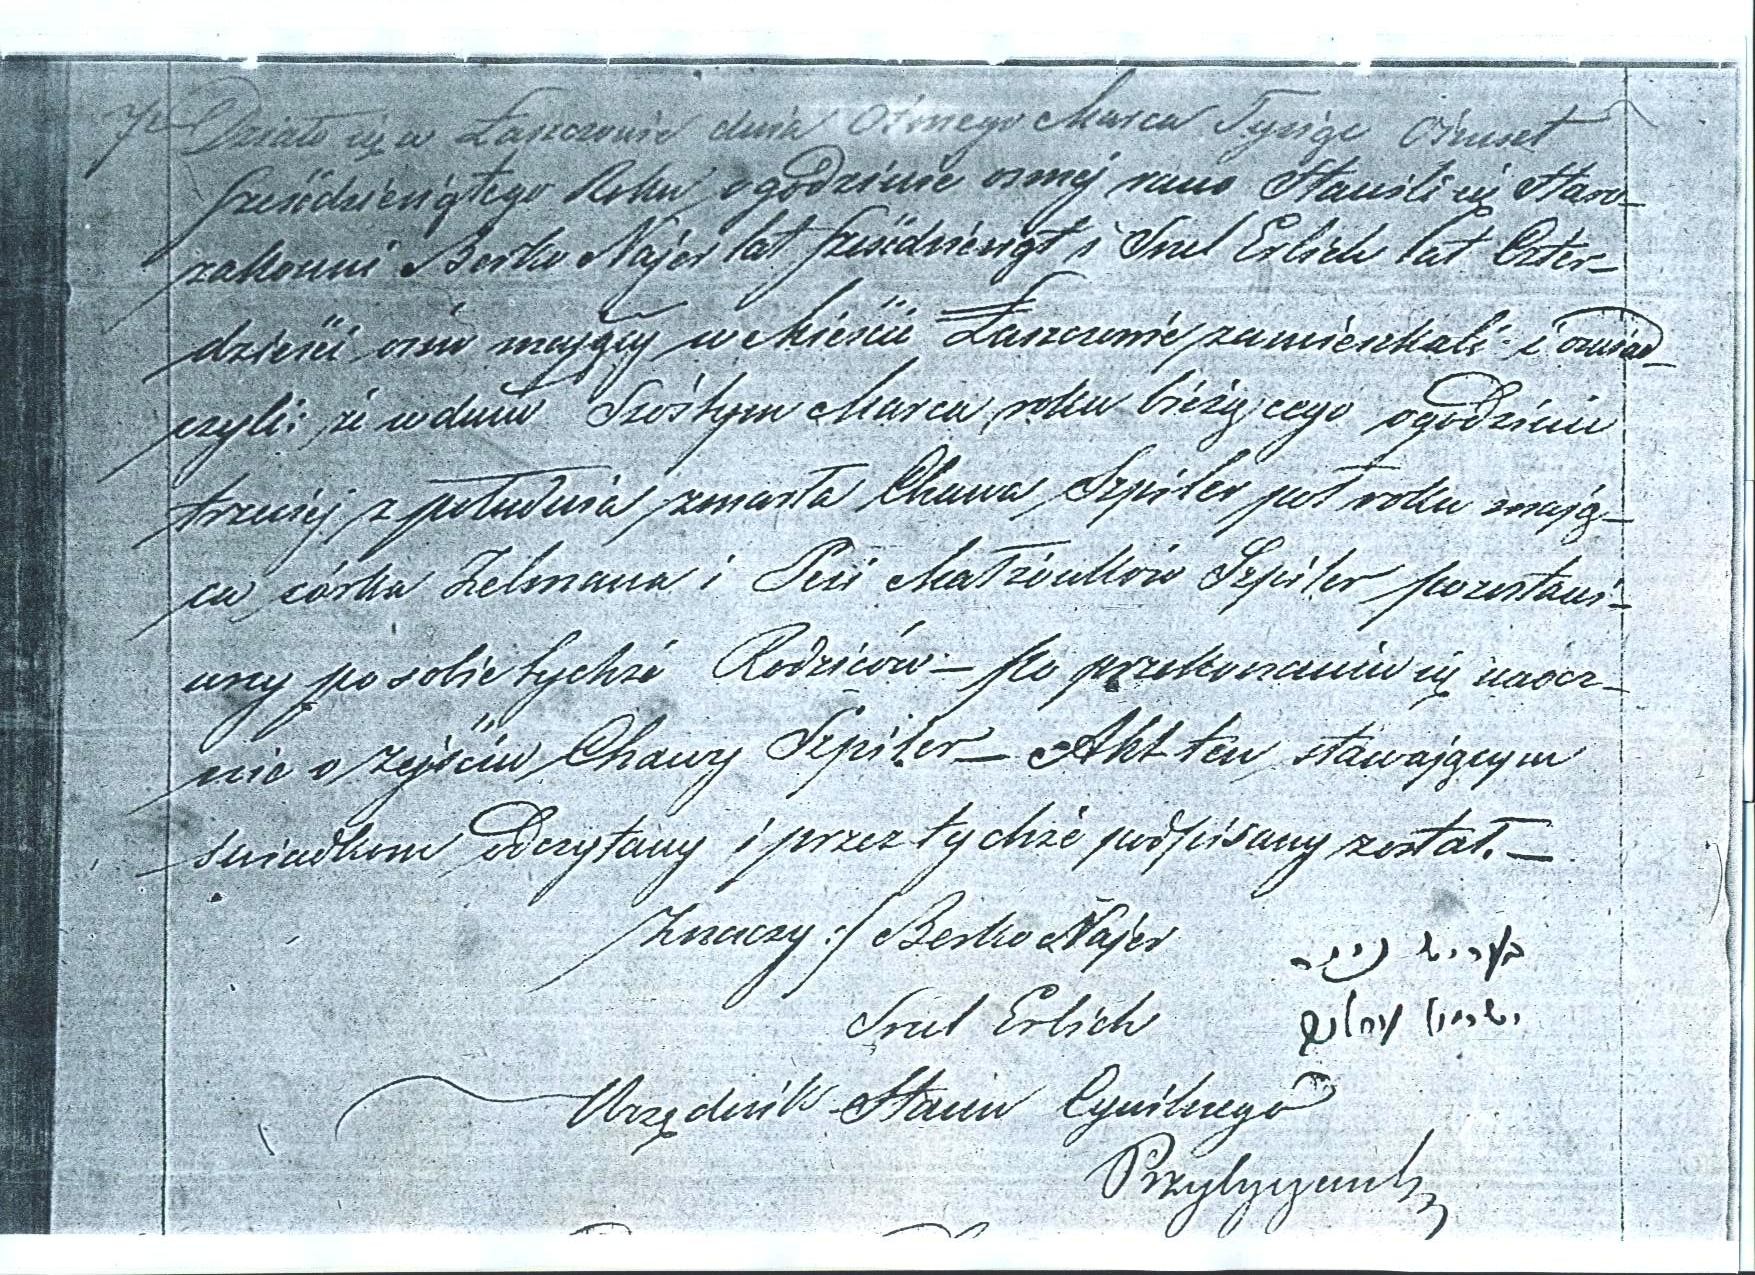 Działo się w Łaszczowie dnia Osmego Marca Tysiąc Ośmset
sześćdziesiątego Roku, o godzinie osmej rano Stawili się Staro-
zakonni Berko Najer lat sześćdziesiąt i Srul Erlich lat Czter-
dzieści osm mający w Mieście Łaszczowie zamieszkali i oświad-
czyli: że w dniu Szóstym Marca roku bieżącego o godzinie
trzeciej z południa zmarła Chawa Szpiler pół roku mają-
ca córka Zelmana i Pesi Małżonków Szpiler pozostawi-
wszy po sobie tychże Rodziców – po przekonaniu się naocz-
nie o zejściu Chawy Szpiler – Akt ten stawającym
świadkom odczytany i przez tychże podpisany został. –
Znaczy :/ Berko Najer בעריש נייער
Srul Erlich ישראל ערליך
Urzędnik Stanu Cywilnego